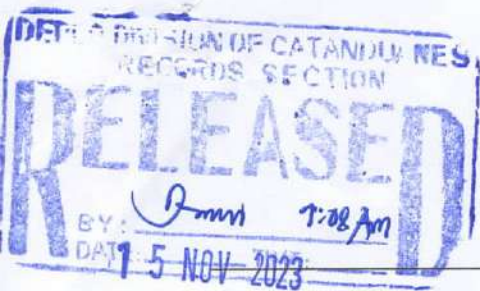 DEPED DIVISION OF CATANDUANES
RECORDS SECTION
RELEASED
BY:
DATE 15 NOV 2023